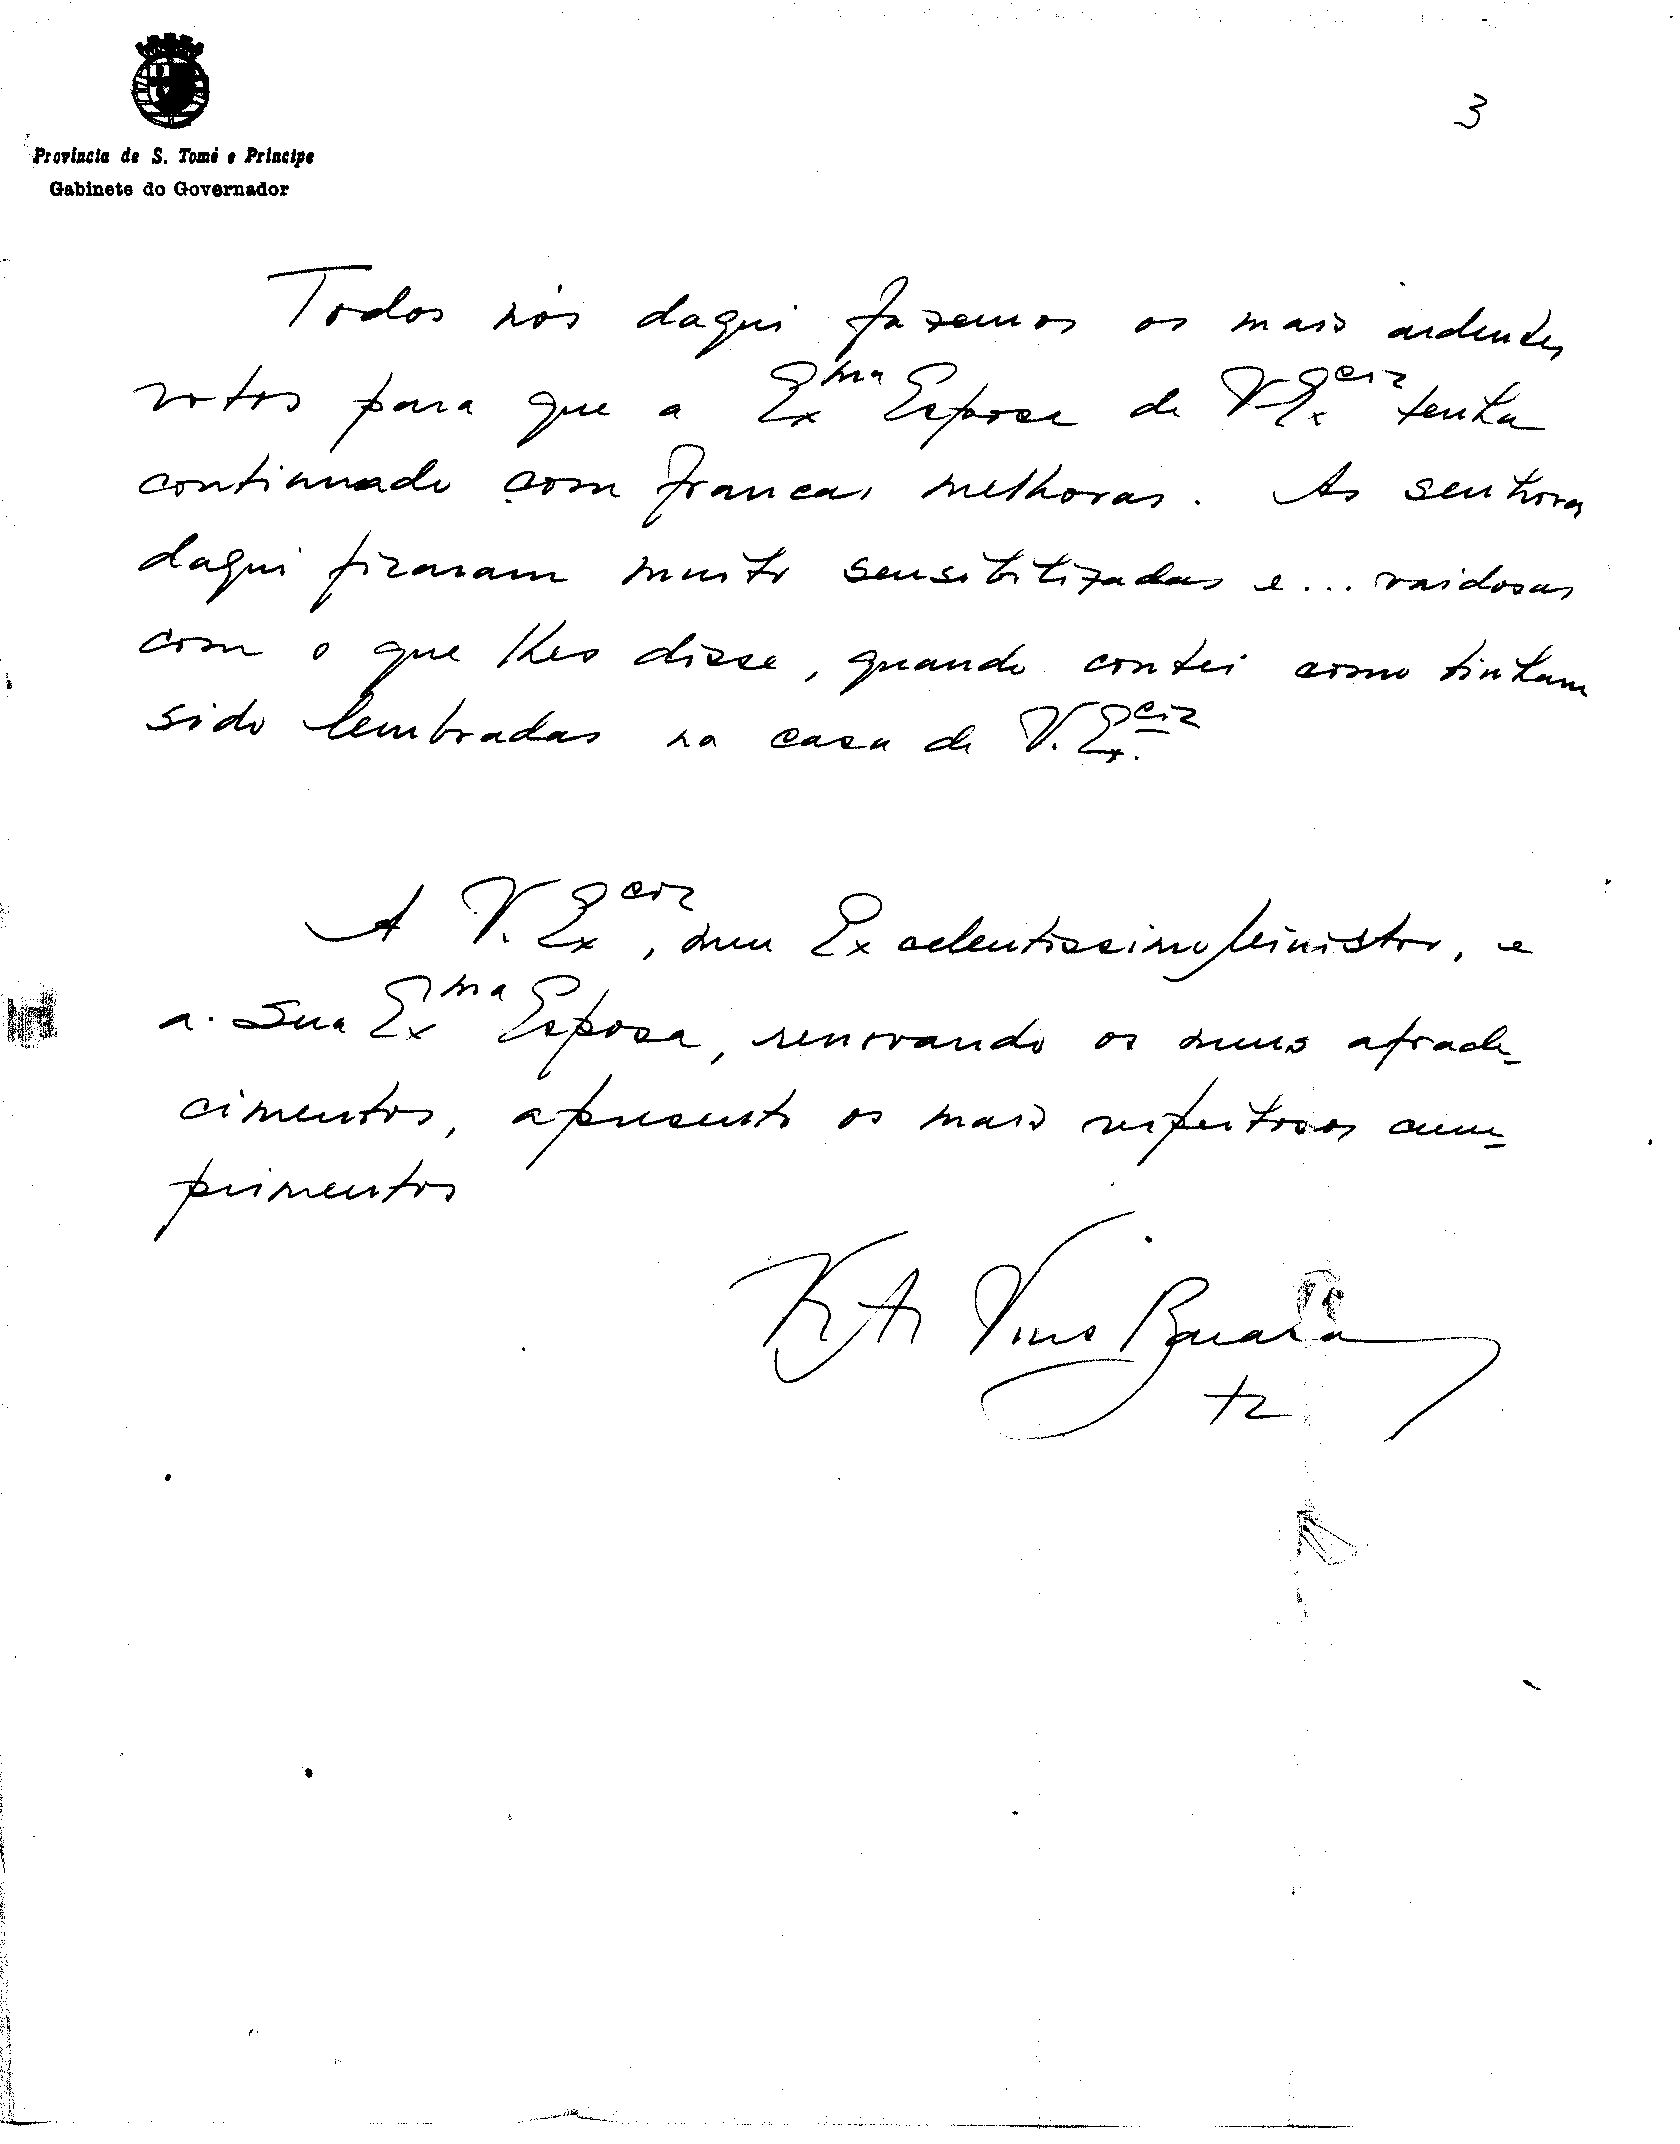 3
Província de S. Tomé e Príncipe
Gabinete do Governador
Todos nós daqui fazemos os mais ardentes
votos para que a Exma Esposa de V. Excia tenha
continuado com francas melhoras. As senhoras
daqui ficaram muito sensibilizadas e... vaidosas
com o que lhes disse, quando contei como tinham
sido lembradas na casa de V. Excia.
A V. Excia, meu Excelentissimo Ministro, e
a Sua Exma Esposa, renovando os meus agrade-
cimentos, apresento os mais respeitosos cum-
primentos